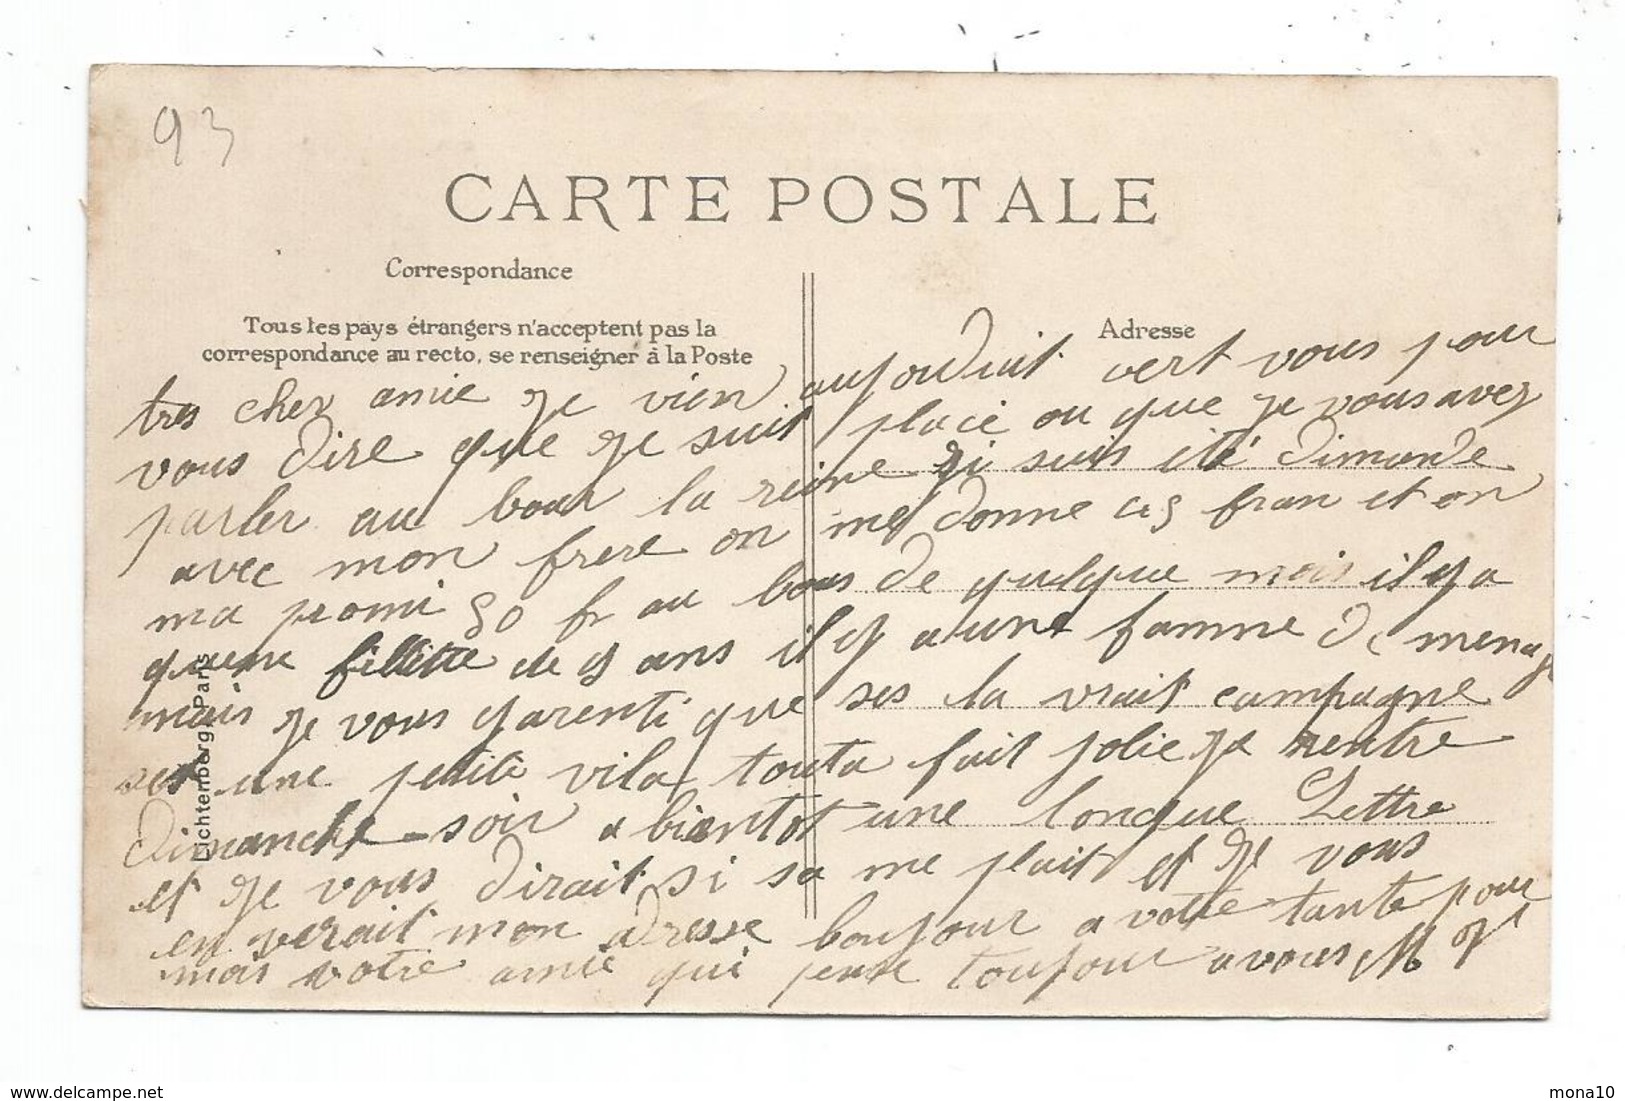 93
CARTE POSTALE
Correspondance
Tous les pays étrangers n'acceptent pas la
correspondance au recto, se renseigner à la Poste
Adresse
tres cher amie je vien aujourduit vert vous pour
vous dire que je suit place ou que je vous avez
parler au bour la reine ji suis été dimande
avec mon frere on me donne fran et on
ma promi 50 fr au bous de quelque mois il y a
quune fillette de 9 ans il y a une famme de menage
mais je vous garenti que ses la vrait campagne
ses une petite vila touta fait jolie je rentre
dimanche soir a bientot une longue Lettre
et je vous dirait si sa me plait et je vous
enverait mon adresse boujour a votre tante pour
moi votre amie qui pense toujour a vous M
Lichtenberg, Paris
delcampe.net
mona10